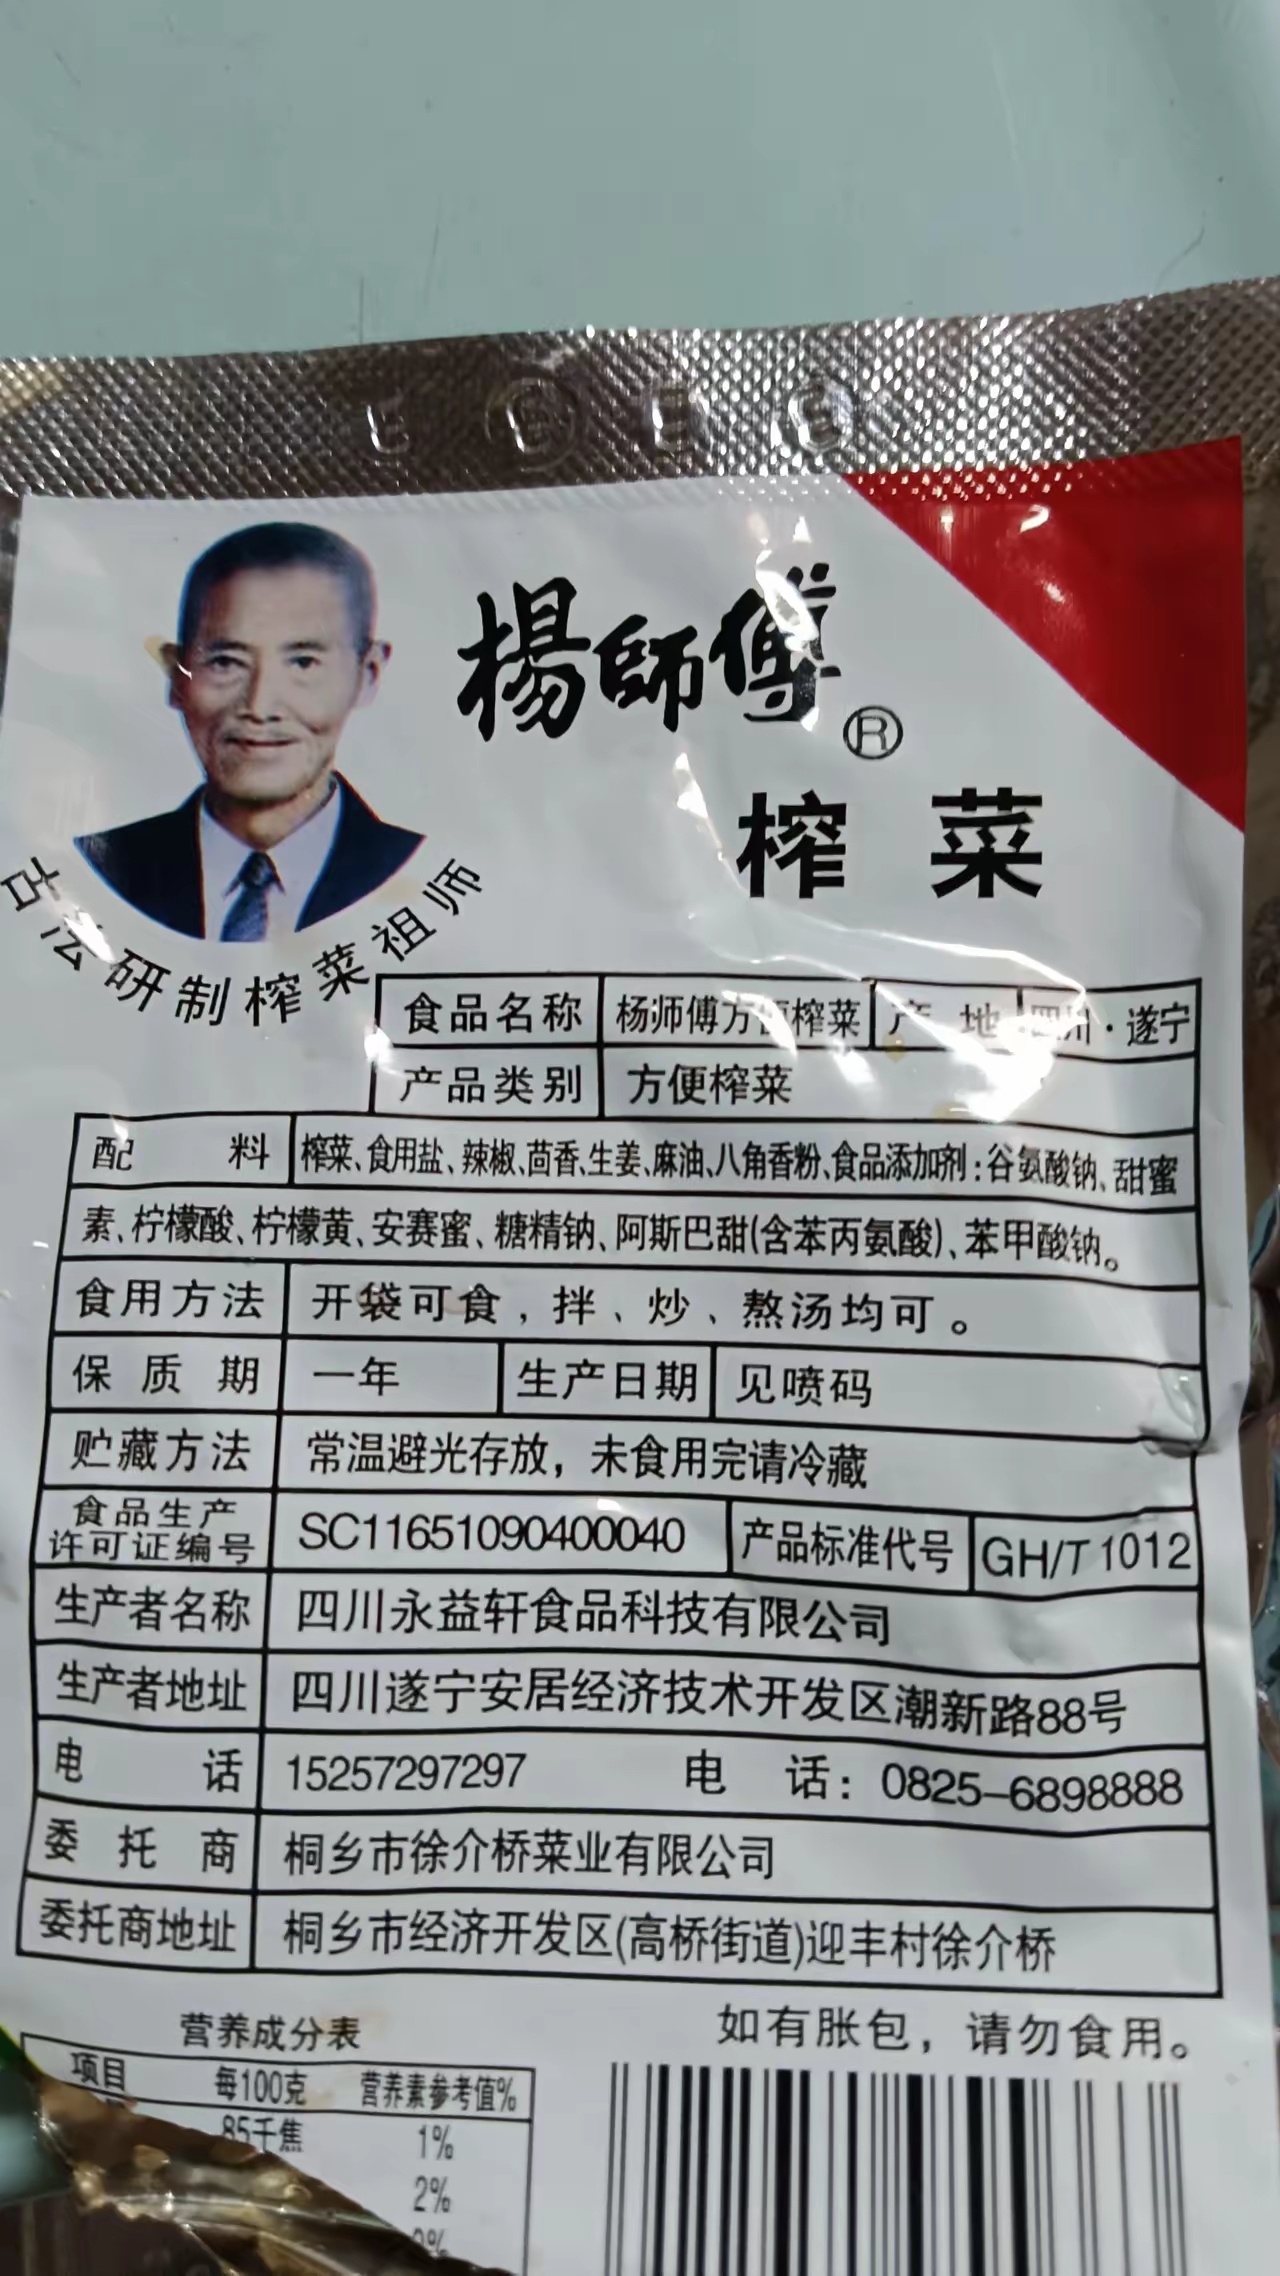 楊師傅®
榨菜
古法研制榨菜祖师
食品名称 杨师傅方便榨菜 产地 四川·遂宁
产品类别 方便榨菜
配料 榨菜、食用盐、辣椒、茴香、生姜、麻油、八角香粉、食品添加剂:谷氨酸钠、甜蜜
素、柠檬酸、柠檬黄、安赛蜜、糖精钠、阿斯巴甜(含苯丙氨酸)、苯甲酸钠。
食用方法 开袋可食,拌、炒、熬汤均可。
保质期 一年 生产日期 见喷码
贮藏方法 常温避光存放,未食用完请冷藏
食品生产
许可证编号 SC11651090400040 产品标准代号 GH/T 1012
生产者名称 四川永益轩食品科技有限公司
生产者地址 四川遂宁安居经济技术开发区潮新路88号
电话 15257297297 电话:0825-6898888
委托商 桐乡市徐介桥菜业有限公司
委托商地址 桐乡市经济开发区(高桥街道)迎丰村徐介桥
如有胀包,请勿食用。
营养成分表
项目 每100克 营养素参考值%
85千焦 1%
2%